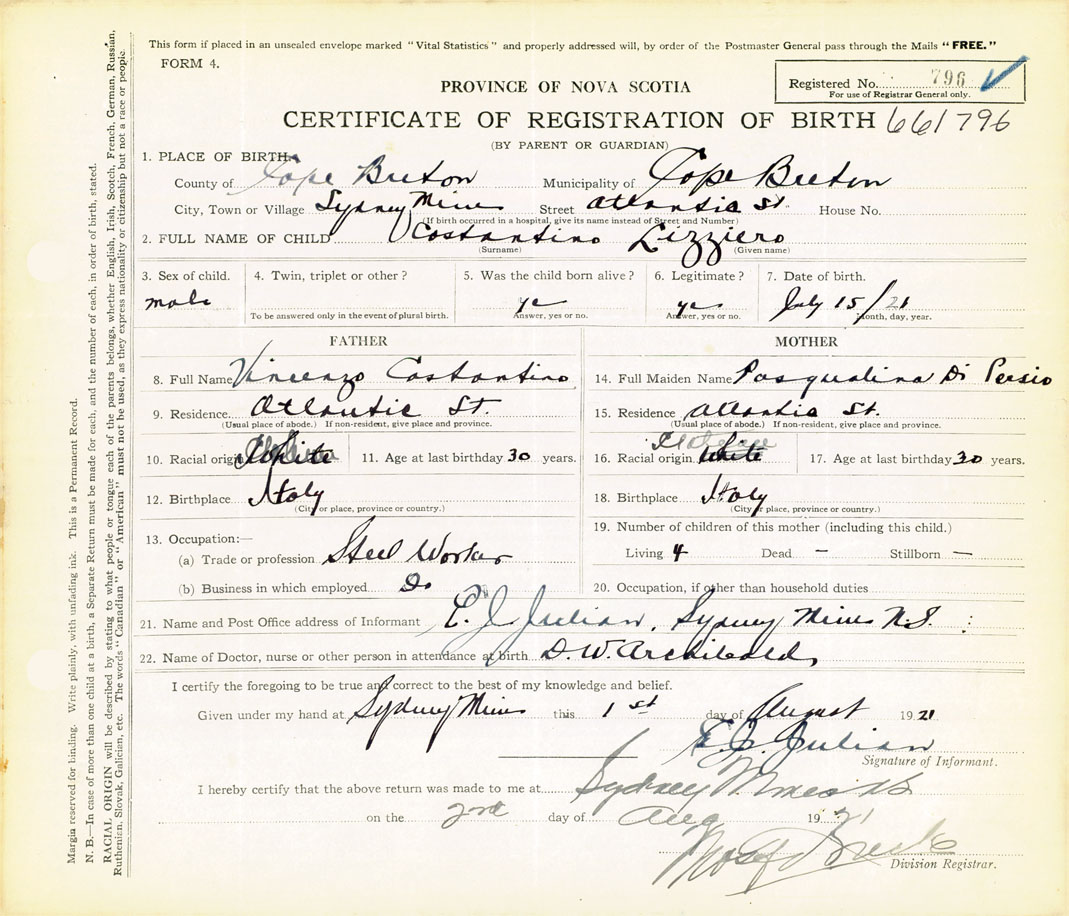 This form if placed in an unsealed envelope marked "Vital Statistics" and properly addressed will, by order of the Postmaster General pass through the Mails "FREE."
FORM 4.
Registered No. 796
For use of Registrar General only.
PROVINCE OF NOVA SCOTIA
CERTIFICATE OF REGISTRATION OF BIRTH 661796
(BY PARENT OR GUARDIAN)
1. PLACE OF BIRTH—
County of Cape Breton Municipality of Cape Breton
City, Town or Village Sydney Mines Street Atlantic St. House No.
(If birth occurred in a hospital, give its name instead of Street and Number)
2. FULL NAME OF CHILD Costantino Lizziero
(Surname) (Given name)
3. Sex of child. 4. Twin, triplet or other? 5. Was the child born alive? 6. Legitimate? 7. Date of birth.
male yes yes July 15/21
To be answered only in the event of plural birth. Answer, yes or no. Answer, yes or no. Month, day, year.
FATHER MOTHER
8. Full Name Vincenzo Costantino 14. Full Maiden Name Pasqualina Di Persio
9. Residence Atlantic St. 15. Residence Atlantic St.
(Usual place of abode.) If non-resident, give place and province. (Usual place of abode.) If non-resident, give place and province.
10. Racial origin White 11. Age at last birthday 30 years. 16. Racial origin Italian White 17. Age at last birthday 30 years.
12. Birthplace Italy 18. Birthplace Italy
(City or place, province or country.) (City or place, province or country.)
13. Occupation:— 19. Number of children of this mother (including this child.)
(a) Trade or profession Steel Worker Living 4 Dead — Stillborn —
(b) Business in which employed Do 20. Occupation, if other than household duties
21. Name and Post Office address of Informant E. J. Julian, Sydney Mines N.S.
22. Name of Doctor, nurse or other person in attendance at birth D. W. Archibald
I certify the foregoing to be true and correct to the best of my knowledge and belief.
Given under my hand at Sydney Mines this 1st day of August 1921
E. J. Julian
Signature of Informant.
I hereby certify that the above return was made to me at Sydney Mines NS
on the 2nd day of Aug 1921
Division Registrar.
Margin reserved for binding. Write plainly, with unfading ink. This is a Permanent Record.
N. B.—In case of more than one child at a birth, a Separate Return must be made for each, and the number of each, in order of birth, stated.
RACIAL ORIGIN will be described by stating to what people or tongue each of the parents belongs, whether English, Irish, Scotch, French, German, Russian,
Ruthenian, Slovak, Galician, etc. The words "Canadian" or "American" must not be used, as they express nationality or citizenship but not a race or people.